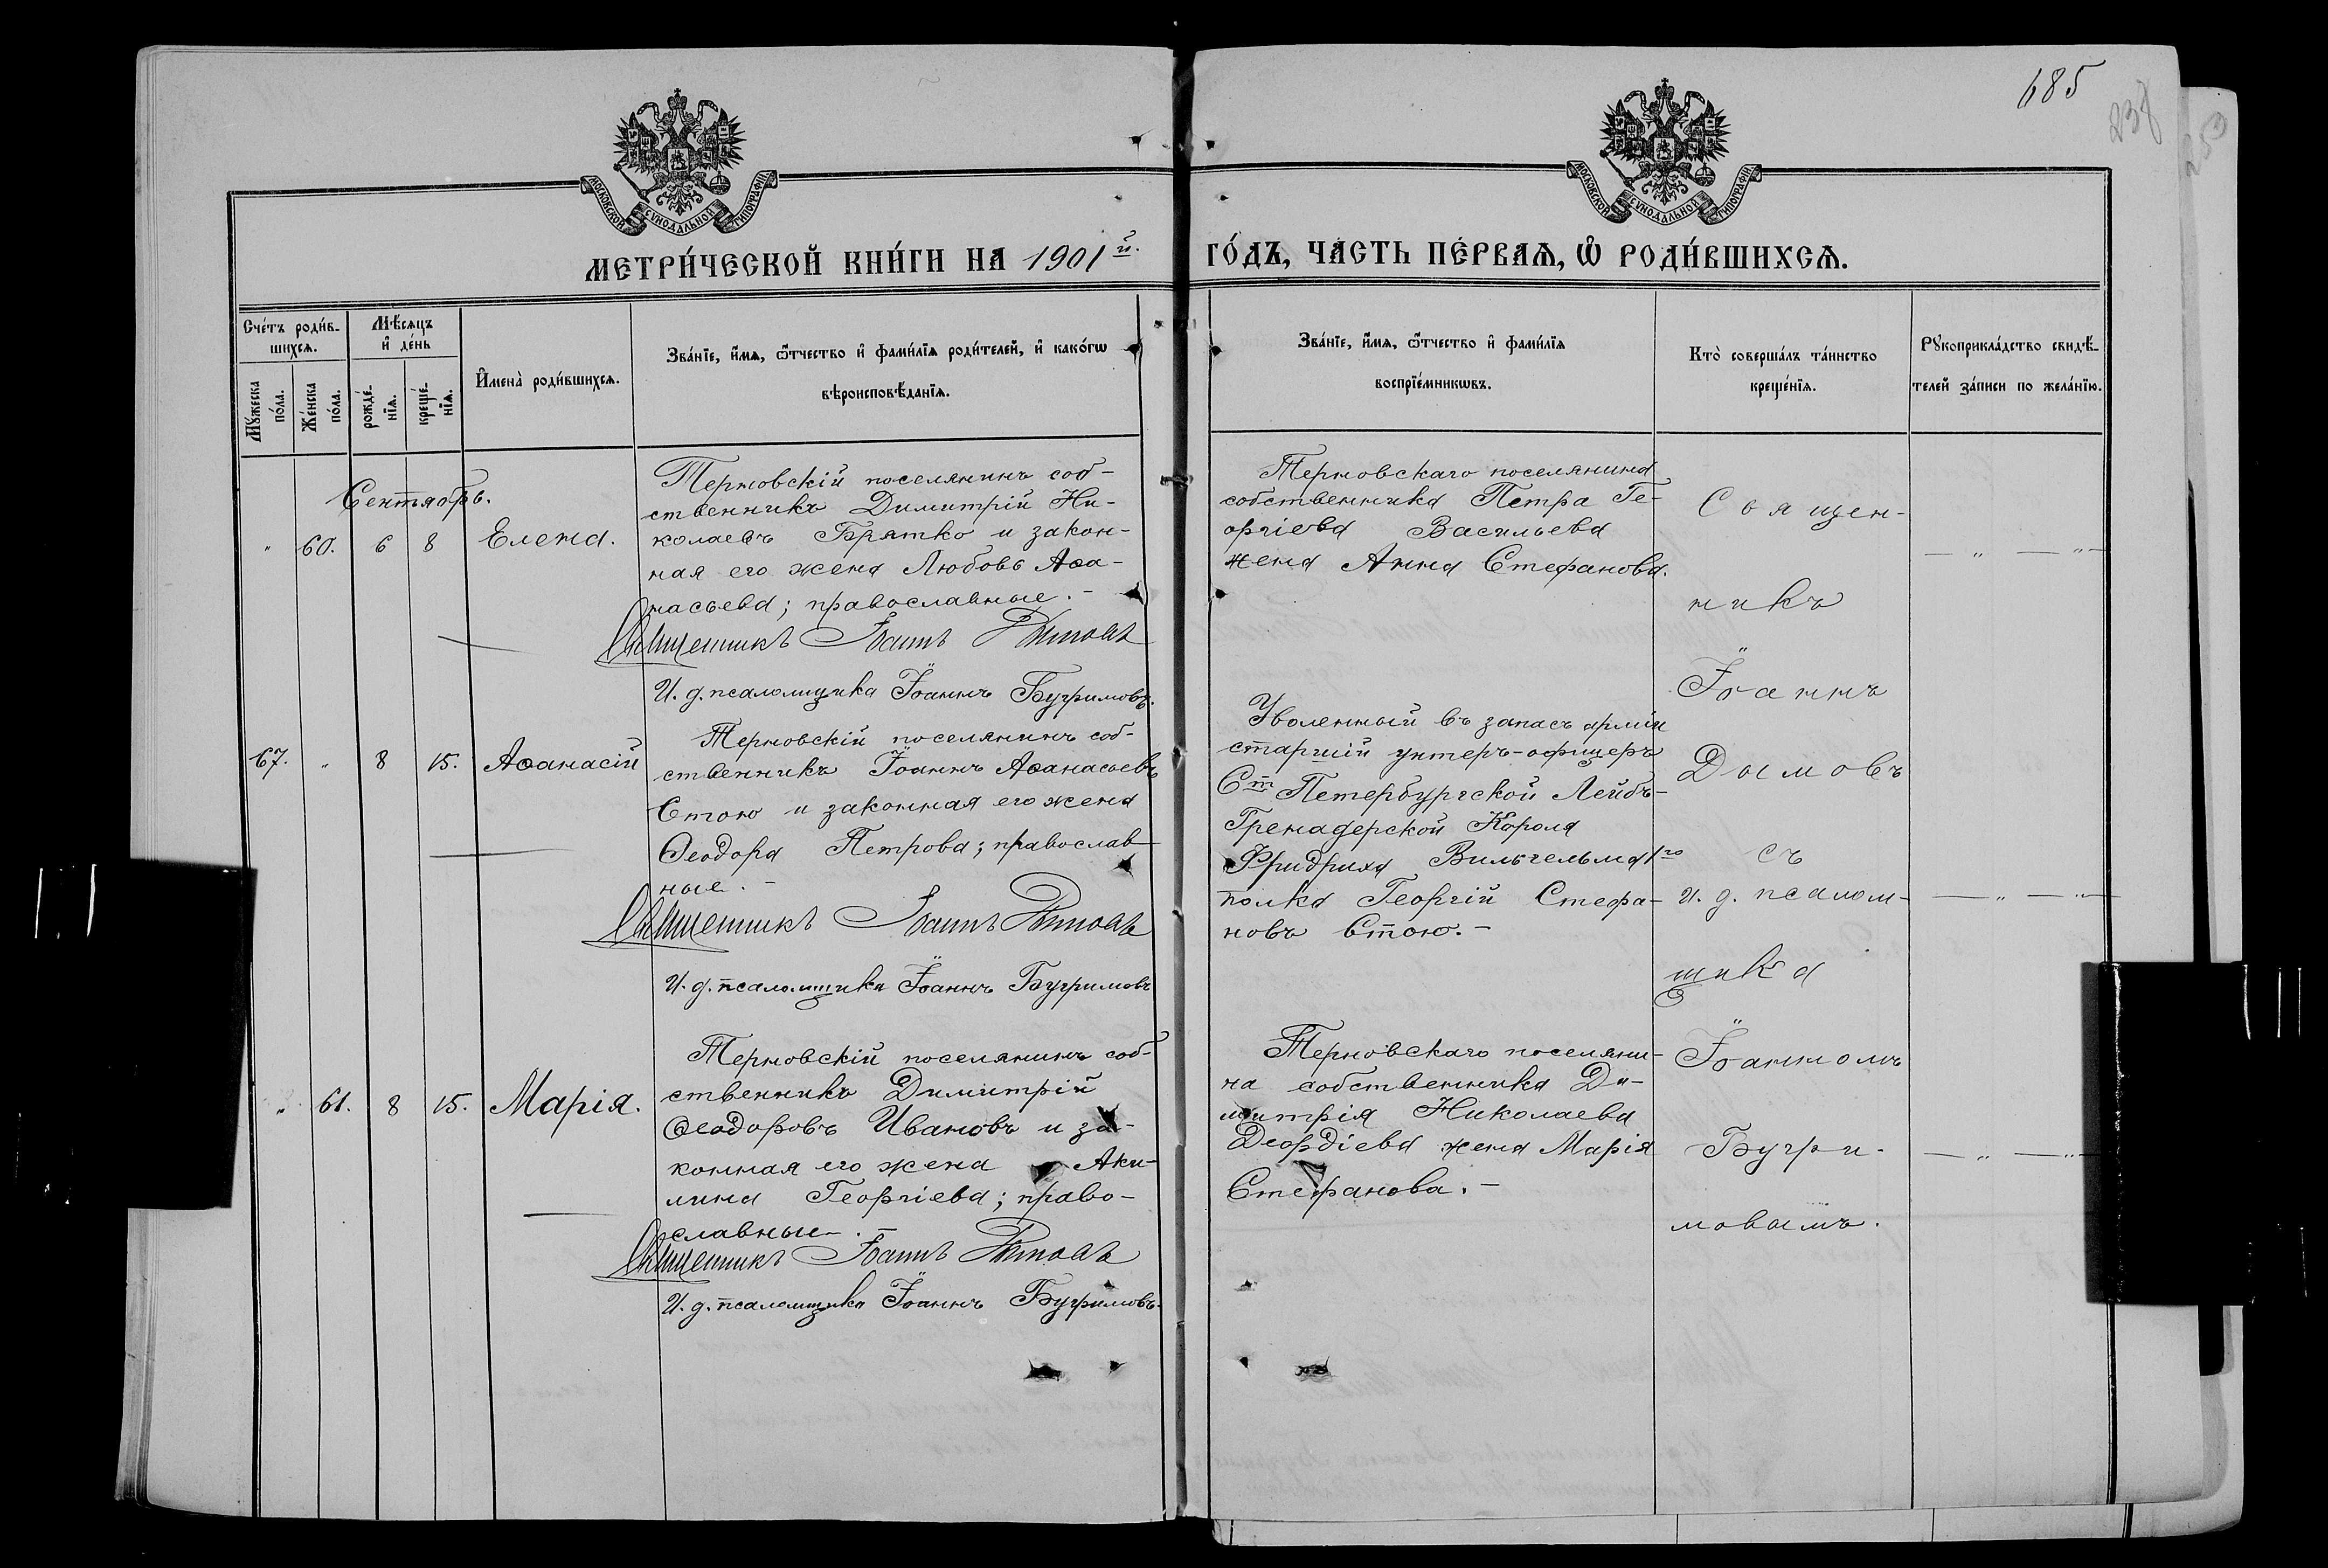 685
238
253
МОСКОВСКОЙ СѴНОДАЛЬНОЙ ТИПОГРАФІИ
МОСКОВСКОЙ СѴНОДАЛЬНОЙ ТИПОГРАФІИ
МЕТРИ́ЧЕСКОЙ КНИ́ГИ НА 1901й.
ГО́ДЪ, ЧА́СТЬ ПЕ́РВАѦ, Ѡ҆ РОДИ́ВШИХСѦ.
Сче́тъ роди́в-
шихсѧ.
Мѣ́сѧцъ
и҆ де́нь
Мꙋ́жеска
по́ла.
Же́нска
по́ла.
рожде́-
нїѧ.
креще́-
нїѧ.
И҆мена̀ роди́вшихсѧ.
Зва́нїе, и҆́мѧ, ѻ҆́тчество и҆ фами́лїѧ роди́телей, и҆ како́гѡ
вѣроисповѣ́данїѧ.
Зва́нїе, и҆́мѧ, ѻ҆́тчество и҆ фами́лїѧ
воспрїе́мникѡвъ.
Кто̀ соверша́лъ та́инство
креще́нїѧ.
Рꙋкоприкла́дство свидѣ́-
телей за́писи по жела́нїю.
Сентябрь.
" 60. 6 8 Елена.
Терновскій поселянинъ соб-
ственникъ Димитрій Ни-
колаевъ Брятко и закон-
ная его жена Любовь Аѳа-
насьева; православные. -
Священникъ Іоаннъ Дымовъ
И. д. псаломщика Іоаннъ Бугримовъ.
Терновскаго поселянина
собственника Петра Ге-
оргіева Васильева
жена Анна Стефанова.
— " — " —
67. " 8 15. Аѳанасій
Терновскій поселянинъ соб-
ственникъ Іоаннъ Аѳанасьевъ
Стою и законная его жена
Ѳеодора Петрова; православ-
ные. -
Священникъ Іоаннъ Дымовъ
И. д. псаломщика Іоаннъ Бугримовъ
Уволенный въ запасъ арміи
старшій унтеръ-офицеръ
Ст Петербургской Лейбъ-
Гренадерской Короля
Фридриха Вильгельма 1го
полка Георгій Стефа-
новъ Стою. -
— " — " —
" 61. 8 15. Марія.
Терновскій поселянинъ соб-
ственникъ Димитрій
Ѳеодоровъ Ивановъ и за-
конная его жена Аки-
лина Георгіева; право-
славные. -
Священникъ Іоаннъ Дымовъ
И. д. псаломщика Іоаннъ Бугримовъ.
Терновскаго поселяни-
на собственника Ди-
митрія Николаева
Деордіева жена Марія
Стефанова. -
— " — " —
Священ-
никъ
Іоаннъ
Дымовъ
съ
и. д. псалом-
щика
Іоанномъ
Бугри-
мовымъ.